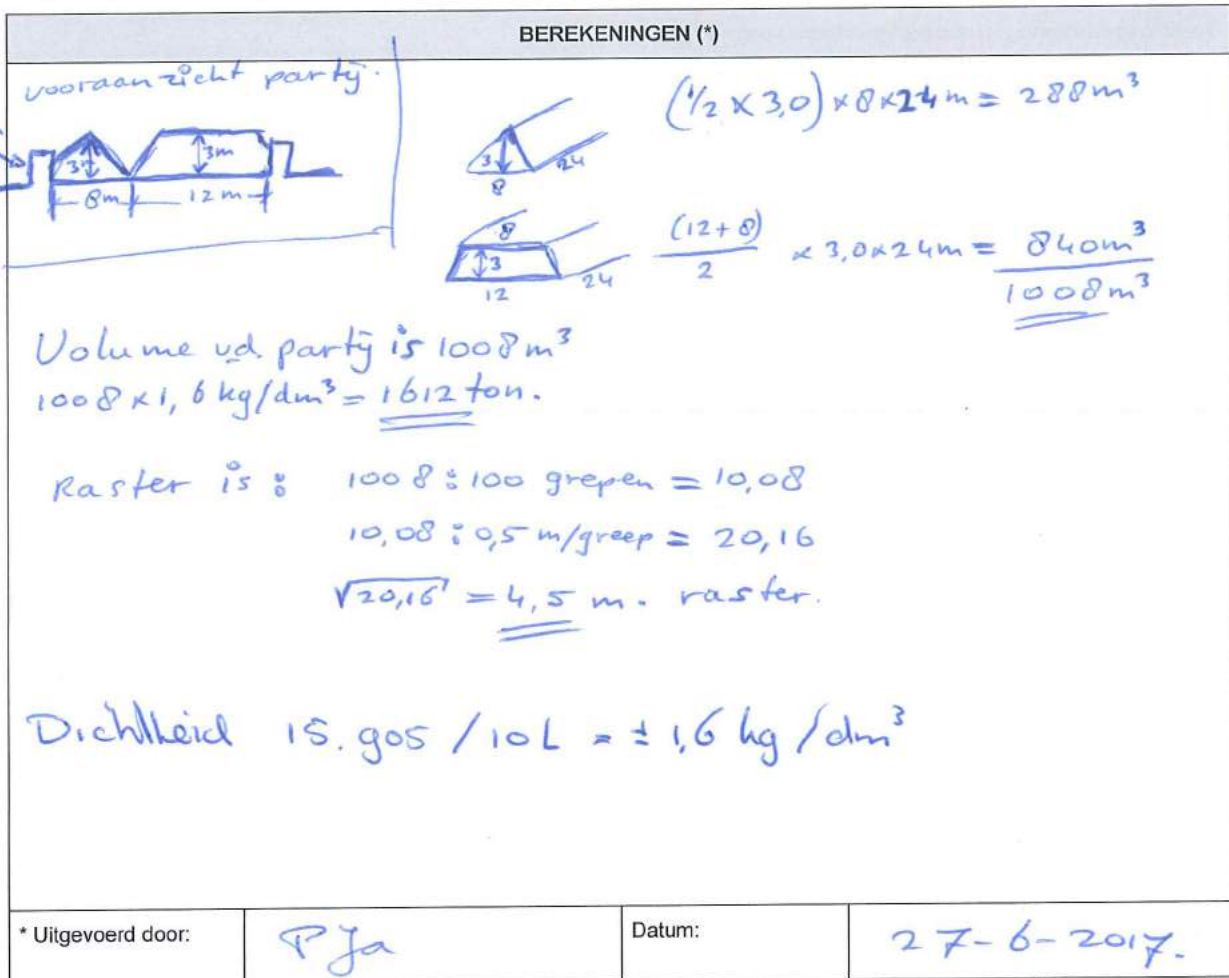 BEREKENINGEN (*)
vooraanzicht partij.
3m 3m
8m 12 m
3 8 24
(1/2 x 3,0) x 8 x 24 m = 288 m³
8 3 12 24
(12+8)/2 x 3,0 x 24 m = 840 m³
1008 m³
Volume vd. partij is 1008 m³
1008 x 1,6 kg/dm³ = 1612 ton.
Raster is : 1008 : 100 grepen = 10,08
10,08 : 0,5 m/greep = 20,16
√20,16 = 4,5 m. raster.
Dichtheid 15.905 / 10 L = ± 1,6 kg/dm³
* Uitgevoerd door: PJa Datum: 27-6-2017.